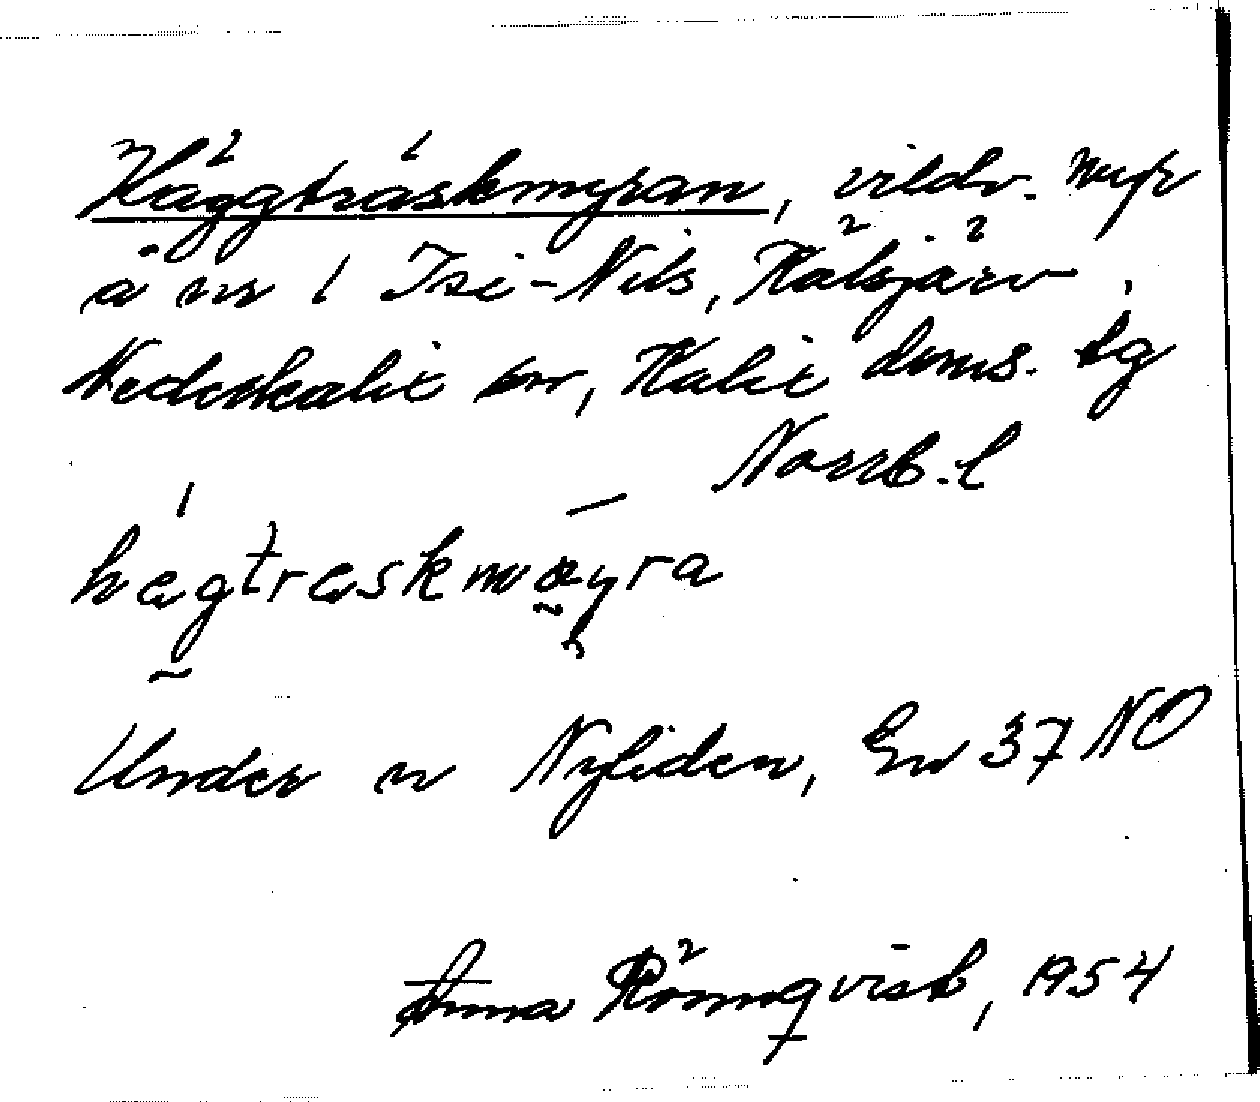 Häggträskmyran, vildv. myr
å nr 1 Isi-Nils, Kälsjärv,
Nederkalix sn, Kalix doms. tg
Norrb. l
hægtræskmæyra
Under n Nyliden, En 37 NO
Anna Rönnqvist, 1954